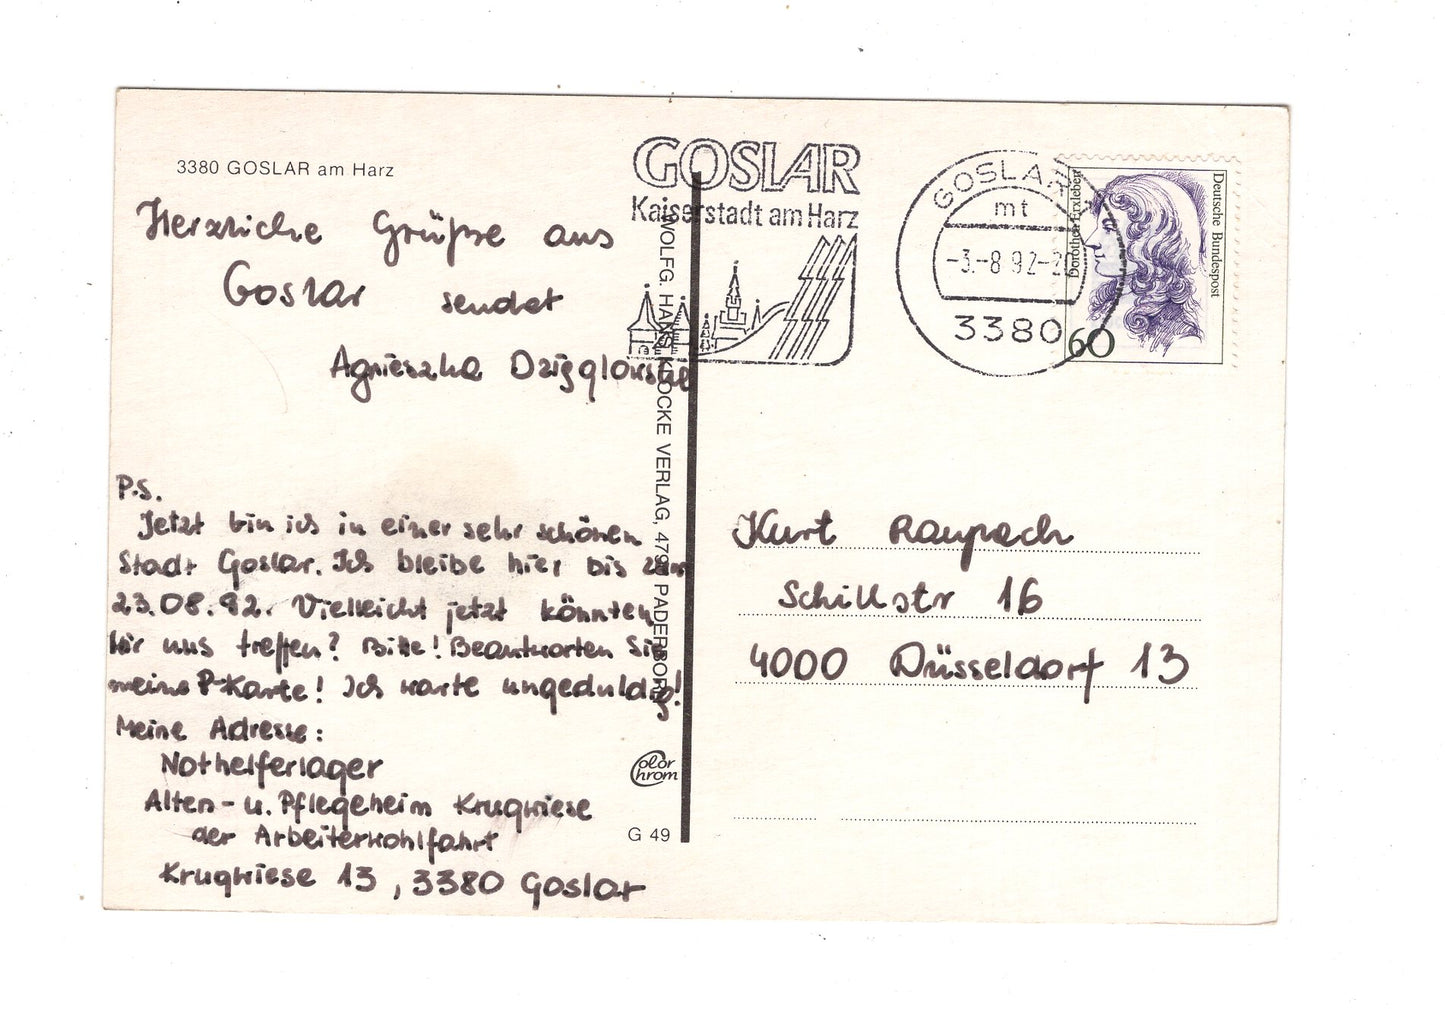 3380 GOSLAR am Harz
Herzliche Grüße aus
Goslar sendet
Agnieszka
P.S.
Jetzt bin ich in einer sehr schönen
Stadt Goslar. Ich bleibe hier bis zum
23.08.92. Vielleicht jetzt könnten
wir uns treffen? Bitte! Beantworten Sie
meine P-Karte! Ich warte ungeduldig!
Meine Adresse:
Nothelferlager
Alten- u. Pflegeheim Krugwiese
der Arbeiterwohlfahrt
Krugwiese 13, 3380 Goslar
WOLFG. HANS KLOCKE VERLAG, 4790 PADERBORN
Color Chrom
G 49
GOSLAR
Kaiserstadt am Harz
GOSLAR 1
mt
-3.-8 92-20
3380
Dorothea Erxleben
Deutsche Bundespost
60
Kurt Raupach
Schillstr 16
4000 Düsseldorf 13